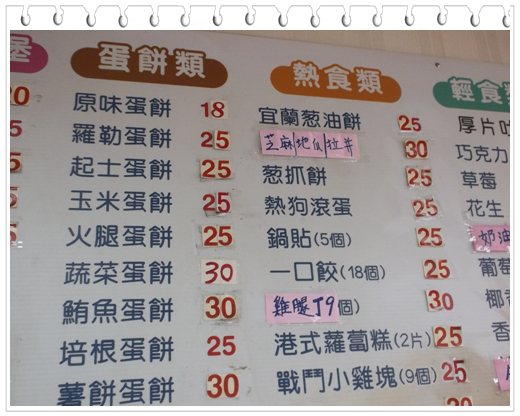 堡
20
5
5
5
5
蛋餅類
原味蛋餅 18
羅勒蛋餅 25
起士蛋餅 25
玉米蛋餅 25
火腿蛋餅 25
蔬菜蛋餅 30
鮪魚蛋餅 30
培根蛋餅 25
薯餅蛋餅 30
熱食類
宜蘭葱油餅 25
芝麻/地瓜/拉丼 30
葱抓餅 25
熱狗滾蛋 25
鍋貼(5個) 25
一口餃(18個) 25
雞腿丁9個) 30
港式蘿蔔糕(2片) 25
戰鬥小雞塊(9個) 25
輕食類
厚片吐
巧克力
草莓
花生
奶油
葡萄
椰香
香